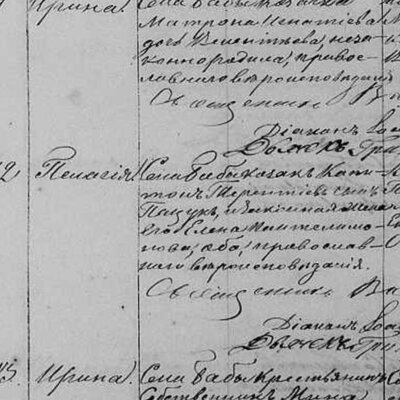 Ирина. Села Бабы казачка
Матрона Игнатіева
дочь Вементьева, неза-
коннорожда, правос-
лавнаго вѣроисповѣданія
Священникъ
Діаконъ
Дьячекъ Гри
2 Пелагія. Села Бабы казакъ Капи-
тонъ Терентіевъ сынъ
Пацукъ, и законная жена
его Елена Пантелимо-
нова, оба православ-
наго вѣроисповѣданія.
Священникъ
Діаконъ
Дьячекъ Гри
Ирина. Села Бабы крестьянинъ
Собственникъ Мина